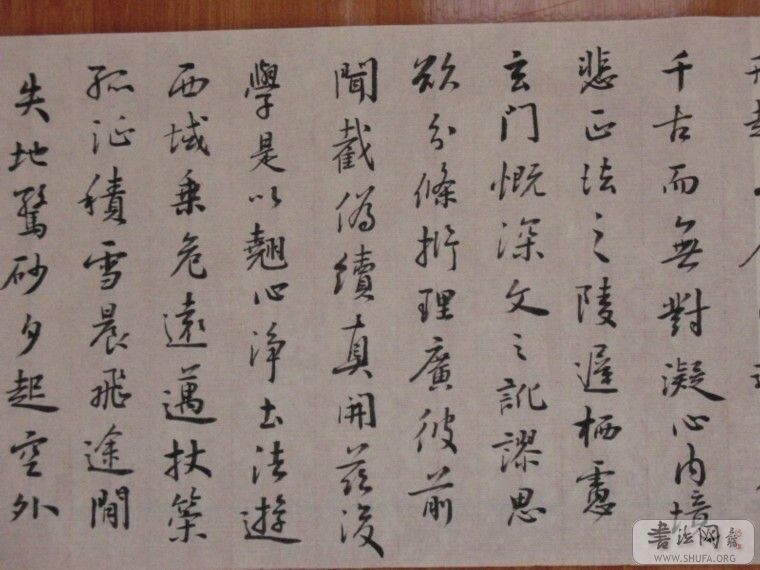 千古而無對凝心内境
悲正法之陵遲栖慮
玄門慨深文之訛謬思
欲分條析理廣彼前
聞截偽續真開茲後
學是以翹心淨土法遊
西域乘危遠邁杖策
孤征積雪晨飛途間
失地驚砂夕起空外
書法网
WWW.SHUFA.ORG